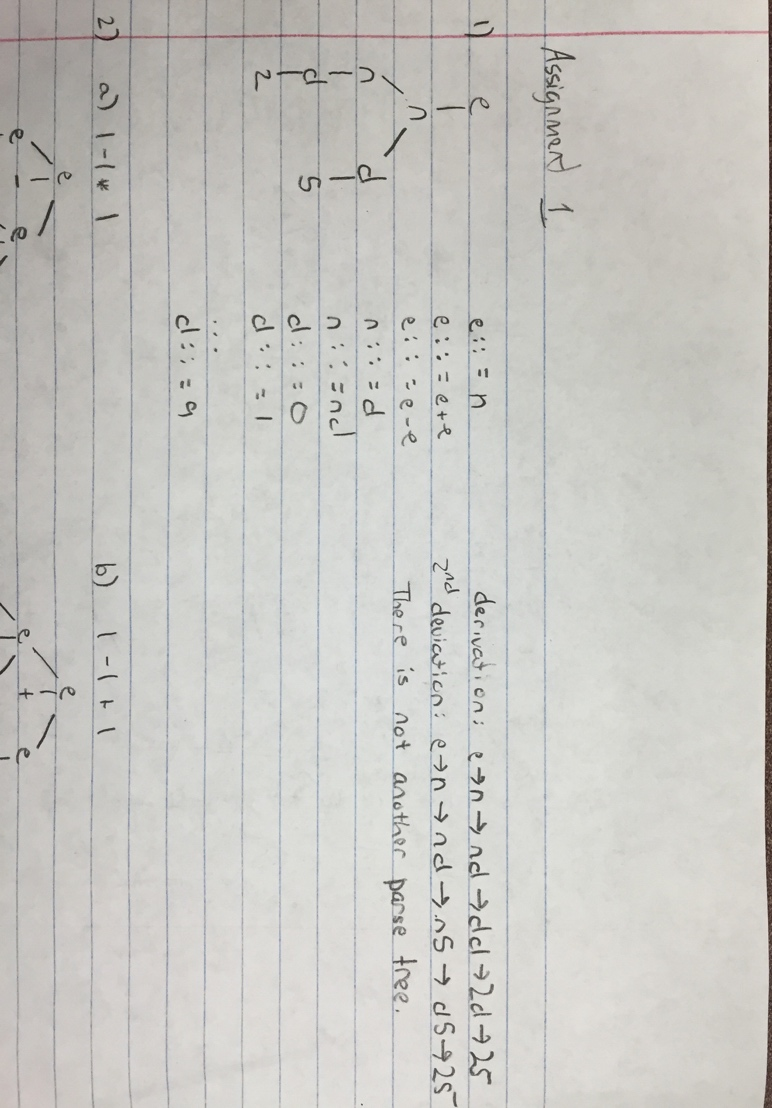 Assignment 1
1)
e
n
n d
d 5
2
e::=n
e::=e+e
e::=e-e
n::=d
n::=nd
d::=0
d::=1
...
d::=9
derivation: e→n→nd→dd→2d→25
2nd deviation: e→n→nd→n5→d5→25
There is not another parse tree.
2) a) 1-1*1
e
e - e
b) 1-1+1
e
e + e